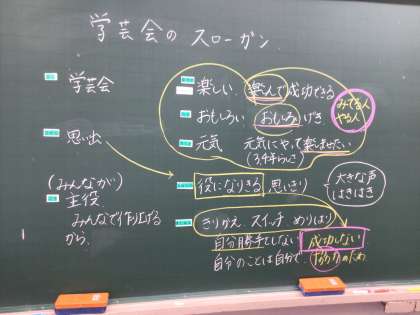 学芸会のスローガン
学芸会
思い出
(みんなが)
主役
みんなで作り上げる
から、
楽しい、喜んで成功できる
おもしろい おもしろいげき
みてる人
やる人
元気 元気にやって楽しませたい
(3年らしく)
役になりきる 思いきり
大きな声
はきはき
きりかえ、スイッチ めりはり
自分勝手としない 成功しない
自分のことは自分で、なかのため